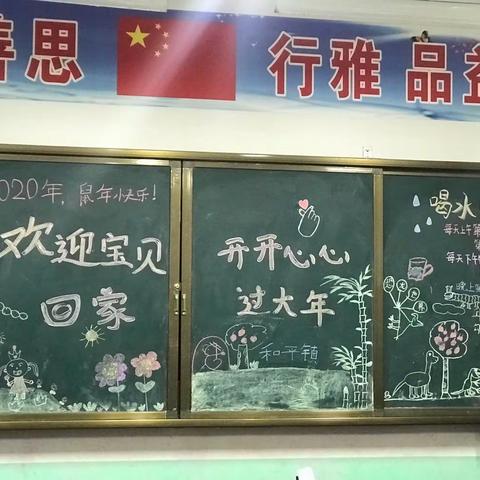 善思 行雅 品益
2020年，鼠年快乐！
欢迎宝贝
回家
开开心心
过大年
和平镇
喝水
每天上午第
每天下午
晚上